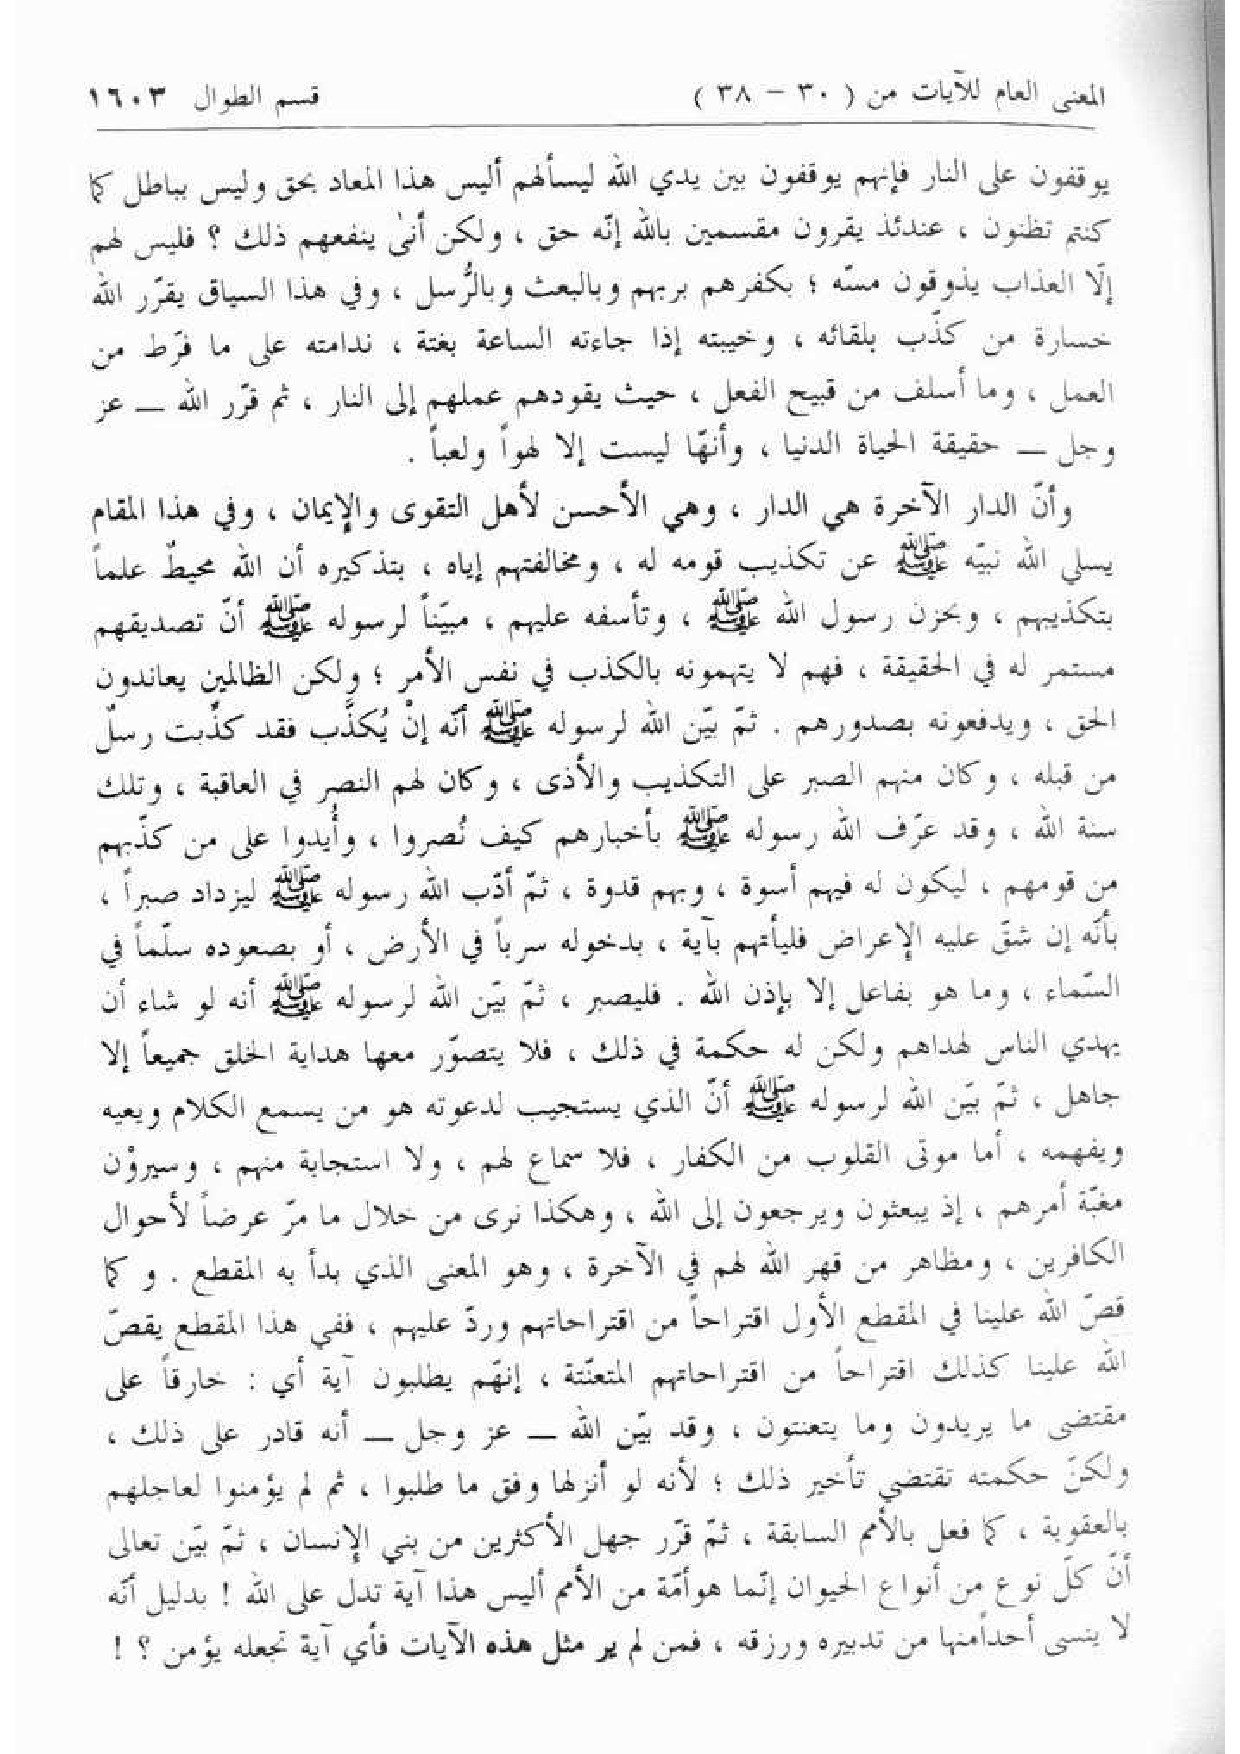 المعنى العام للآيات من ( ٣٠ – ٣٨ ) قسم الطوال ١٦٠٣
يوقفون على النار فإنهم يوقفون بين يدي الله ليسألهم أليس هذا المعاد بحق وليس بباطل كما
كنتم تظنون ، عندئذ يقرون مقسمين بالله إنّه حق ، ولكن أنىٰ ينفعهم ذلك ؟ فليس لهم
إلّا العذاب يذوقون مسّه ؛ بكفرهم بربهم وبالبعث وبالرُّسل ، وفي هذا السياق يقرّر الله
خسارة من كذّب بلقائه ، وخيبته إذا جاءته الساعة بغتة ، ندامته على ما فرّط من
العمل ، وما أسلف من قبيح الفعل ، حيث يقودهم عملهم إلى النار ، ثم قرّر الله — عز
وجل — حقيقة الحياة الدنيا ، وأنهّا ليست إلا لهواً ولعباً .
وأنّ الدار الآخرة هي الدار ، وهي الأحسن لأهل التقوى والإيمان ، وفي هذا المقام
يسلي الله نبيّه ﷺ عن تكذيب قومه له ، ومخالفتهم إياه ، بتذكيره أن الله محيطٌ علماً
بتكذيبهم ، وبحزن رسول الله ﷺ ، وتأسفه عليهم ، مبيّناً لرسوله ﷺ أنّ تصديقهم
مستمر له في الحقيقة ، فهم لا يتهمونه بالكذب في نفس الأمر ؛ ولكن الظالمين يعاندون
الحق ، ويدفعونه بصدورهم . ثمّ بيّن الله لرسوله ﷺ أنّه إنْ يُكذَّب فقد كذّبت رسلٌ
من قبله ، وكان منهم الصبر على التكذيب والأذى ، وكان لهم النصر في العاقبة ، وتلك
سنة الله ، وقد عرّف الله رسوله ﷺ بأخبارهم كيف نُصروا ، وأُيدوا على من كذّبهم
من قومهم ، ليكون له فيهم أسوة ، وبهم قدوة ، ثمّ أدّب الله رسوله ﷺ ليزداد صبراً ،
بأنّه إن شقّ عليه الإعراض فليأتهم بآية ، بدخوله سرباً في الأرض ، أو بصعوده سلّماً في
السّماء ، وما هو بفاعل إلا بإذن الله . فليصبر ، ثمّ بيّن الله لرسوله ﷺ أنه لو شاء أن
يهدي الناس لهداهم ولكن له حكمة في ذلك ، فلا يتصوّر معها هداية الخلق جميعاً إلا
جاهل ، ثمّ بيّن الله لرسوله ﷺ أنّ الذي يستجيب لدعوته هو من يسمع الكلام ويعيه
ويفهمه ، أما موتى القلوب من الكفار ، فلا سماع لهم ، ولا استجابة منهم ، وسيروْن
مغبّة أمرهم ، إذ يبعثون ويرجعون إلى الله ، وهكذا نرى من خلال ما مرّ عرضاً لأحوال
الكافرين ، ومظاهر من قهر الله لهم في الآخرة ، وهو المعنى الذي بدأ به المقطع . و كما
قصّ الله علينا في المقطع الأول اقتراحاً من اقتراحاتهم وردّ عليهم ، ففي هذا المقطع يقصّ
الله علينا كذلك اقتراحاً من اقتراحاتهم المتعنّتة ، إنهّم يطلبون آية أي : خارقاً على
مقتضى ما يريدون وما يتعنتون ، وقد بيّن الله — عز وجل — أنه قادر على ذلك ،
ولكنّ حكمته تقتضي تأخير ذلك ؛ لأنه لو أنزلها وفق ما طلبوا ، ثم لم يؤمنوا لعاجلهم
بالعقوبة ، كما فعل بالأمم السابقة ، ثمّ قرّر جهل الأكثرين من بني الإنسان ، ثمّ بيّن تعالى
أنّ كلّ نوع من أنواع الحيوان إنّما هو أمّة من الأمم أليس هذا آية تدل على الله ! بدليل أنّه
لا ينسى أحداً منها من تدبيره ورزقه ، فمن لم ير مثل هذه الآيات فأي آية تجعله يؤمن ؟ !